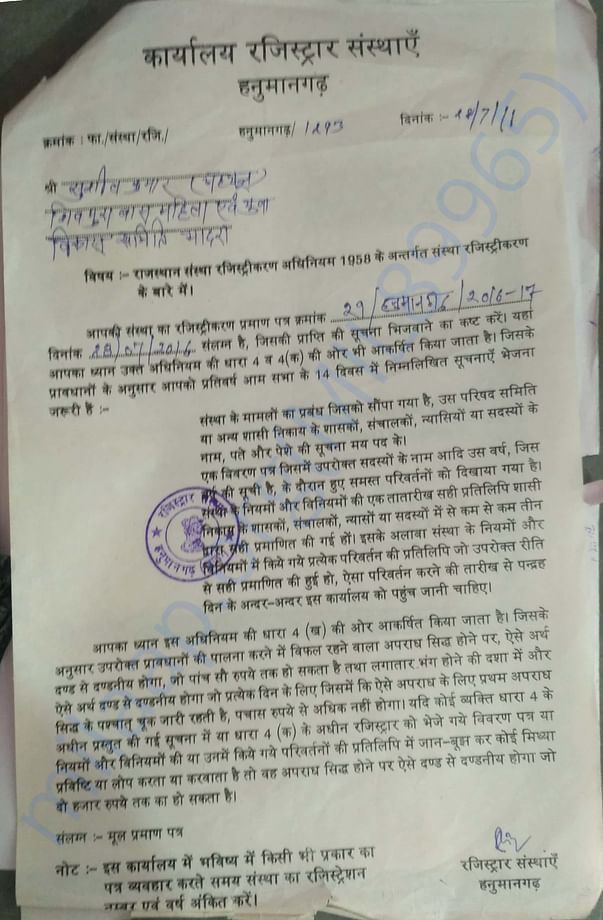 कार्यालय रजिस्ट्रार संस्थाएँ
हनुमानगढ़
क्रमांक : फा./संस्था/रजि./ हनुमानगढ़/1293 दिनांक :-
श्री सुशील कुमार
शिवपुरा बास महिला एवं युवा
विकास समिति भादरा
विषय :- राजस्थान संस्था रजिस्ट्रीकरण अधिनियम 1958 के अन्तर्गत संस्था रजिस्ट्रीकरण
के बारे में।
आपकी संस्था का रजिस्ट्रीकरण प्रमाण पत्र क्रमांक 29/हनुमानगढ़/2016-17
दिनांक 28/07/2016 संलग्न है, जिसकी प्राप्ति की सूचना भिजवाने का कष्ट करें। यहां
आपका ध्यान उक्त अधिनियम की धारा 4 व 4(क) की ओर भी आकर्षित किया जाता है। जिसके
प्रावधानों के अनुसार आपको प्रतिवर्ष आम सभा के 14 दिवस में निम्नलिखित सूचनाएँ भेजना
जरूरी है :-
संस्था के मामलों का प्रबंध जिसको सौंपा गया है, उस परिषद समिति
या अन्य शासी निकाय के शासकों, संचालकों, न्यासियों या सदस्यों के
नाम, पते और पेशे की सूचना मय पद के।
एक विवरण पत्र जिसमें उपरोक्त सदस्यों के नाम आदि उस वर्ष, जिस
वर्ष की सूची है, के दौरान हुए समस्त परिवर्तनों को दिखाया गया है।
संस्था के नियमों और विनियमों की एक तातारीख सही प्रतिलिपि शासी
निकाय के शासकों, संचालकों, न्यासों या सदस्यों में से कम से कम तीन
द्वारा सही प्रमाणित की गई हों। इसके अलावा संस्था के नियमों और
विनियमों में किये गये प्रत्येक परिवर्तन की प्रतिलिपि जो उपरोक्त रीति
से सही प्रमाणित की हुई हो, ऐसा परिवर्तन करने की तारीख से पन्द्रह
दिन के अन्दर-अन्दर इस कार्यालय को पहुंच जानी चाहिए।
रजिस्ट्रार
हनुमानगढ़
आपका ध्यान इस अधिनियम की धारा 4 (ख) की ओर आकर्षित किया जाता है। जिसके
अनुसार उपरोक्त प्रावधानों की पालना करने में विफल रहने वाला अपराध सिद्ध होने पर, ऐसे अर्थ
दण्ड से दण्डनीय होगा, जो पांच सौ रुपये तक हो सकता है तथा लगातार भंग होने की दशा में और
ऐसे अर्थ दण्ड से दण्डनीय होगा जो प्रत्येक दिन के लिए जिसमें कि ऐसे अपराध के लिए प्रथम अपराध
सिद्ध के पश्चात् चूक जारी रहती है, पचास रुपये से अधिक नहीं होगा। यदि कोई व्यक्ति धारा 4 के
अधीन प्रस्तुत की गई सूचना में या धारा 4 (क) के अधीन रजिस्ट्रार को भेजे गये विवरण पत्र या
नियमों और विनियमों की या उनमें किये गये परिवर्तनों की प्रतिलिपि में जान-बूझ कर कोई मिथ्या
प्रविष्टि या लोप करता या करवाता है तो वह अपराध सिद्ध होने पर ऐसे दण्ड से दण्डनीय होगा जो
दो हजार रुपये तक का हो सकता है।
संलग्न :- मूल प्रमाण पत्र
नोट :- इस कार्यालय में भविष्य में किसी भी प्रकार का
पत्र व्यवहार करते समय संस्था का रजिस्ट्रेशन
नम्बर एवं वर्ष अंकित करें।
रजिस्ट्रार संस्थाएँ
हनुमानगढ़